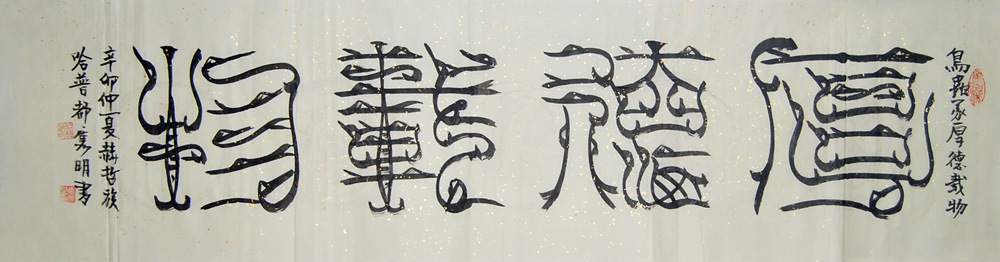 鳥蟲篆厚德載物
厚德載物
辛卯仲夏赫哲族
哈普都隽明書